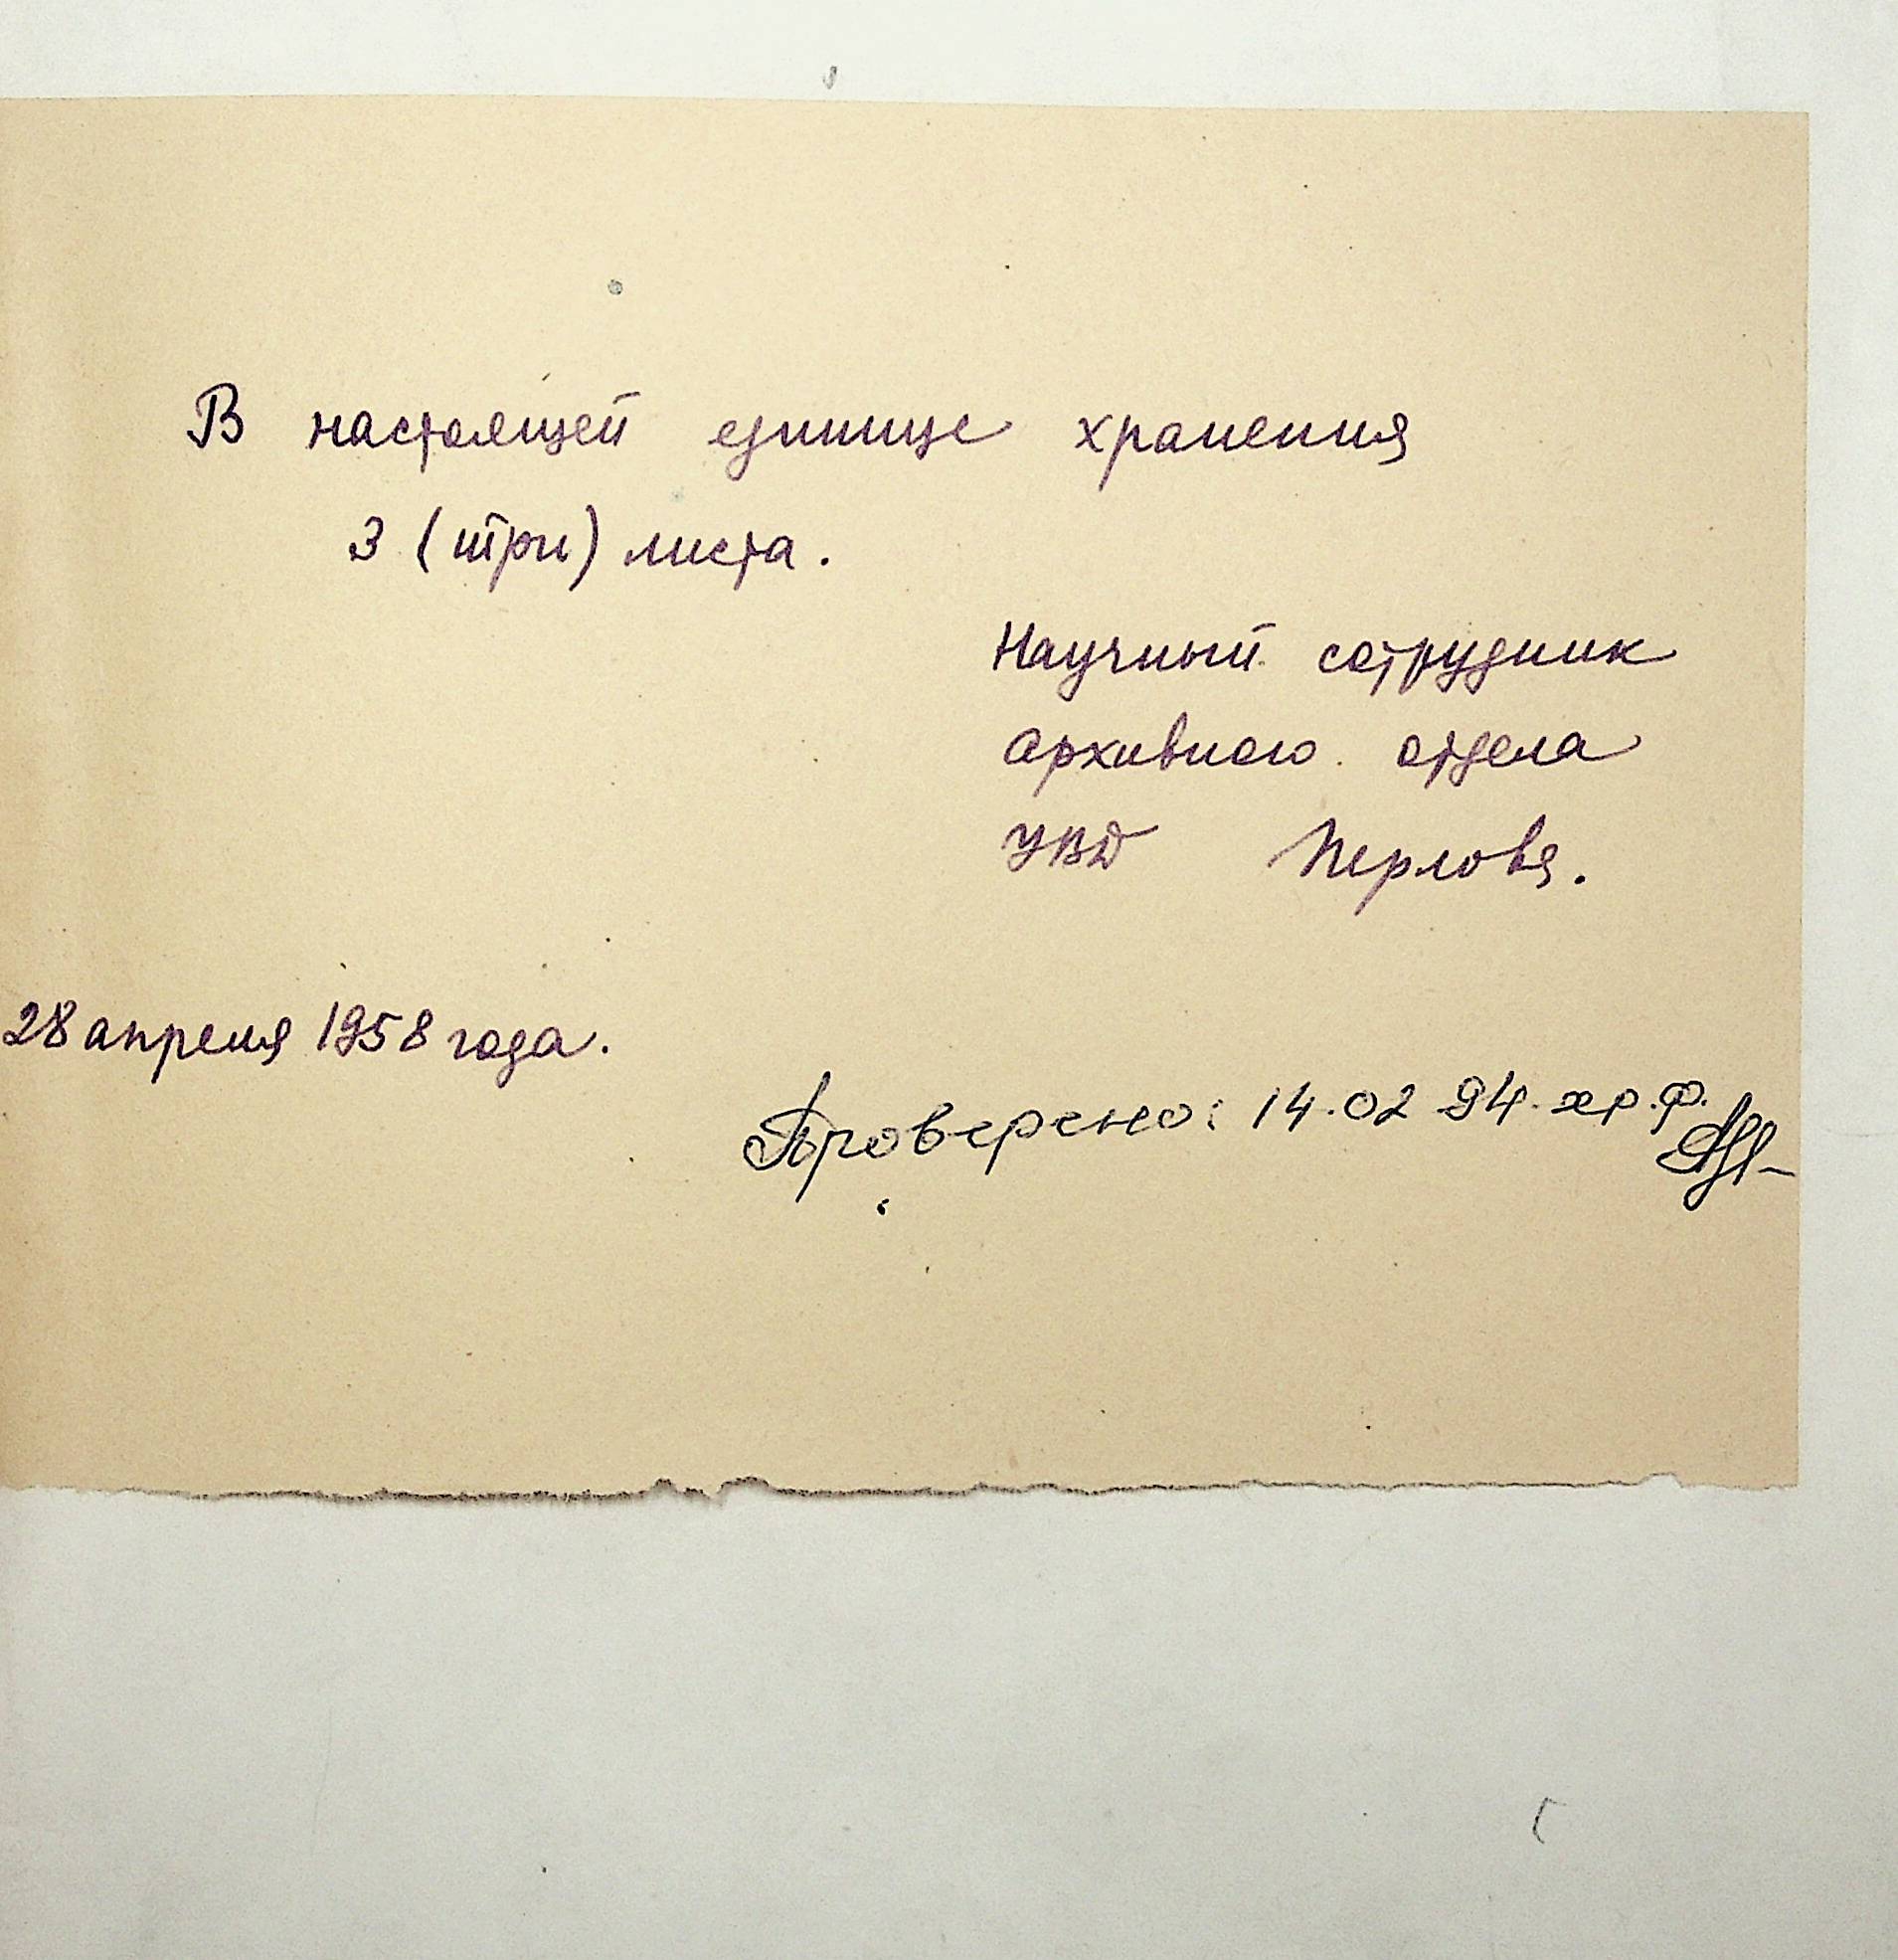 В настоящей единице хранения
3 (три) листа.
Научный сотрудник
архивного отдела
УВД Перлова.
28 апреля 1958 года.
Проверено: 14.02 94. хр.ф.